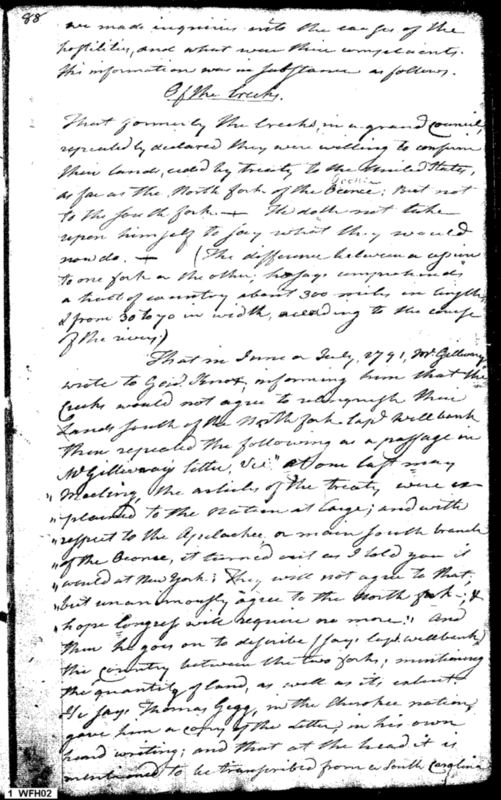 88
we made inquiries into the causes of the
hostilities, and what were their complaints.
His information was in substance as follows.
Of the Creeks.
That formerly the Creeks, in a grand Council,
repeatedly declared they were willing to confirm
their lands, ceded by treaty to the United States,
as far as the North fork of the Oconee; But not
to the South fork. — He doth not take
upon himself to say what they would
now do. — (The difference between a cession
to one fork or the other, he says comprehends
a tract of country about 300 miles in length,
& from 30 to 70 in width, according to the course
of the rivers)
That in June or July, 1791, Mr. Gillivray
wrote to Genl. Knox, informing him that the
Creeks would not agree to relinquish their
Lands south of the North fork. Capt. Wellbank
then repeated the following as a passage in
McGillivray's letter, viz. "At our last may
"Meeting, the articles of the treaty were ex-
"plained to the Nation at large; and with
"respect to the Apalachee or main south branch
"of the Oconee, it turned out as I told you it
"would at New York; They will not agree to that,
"but unanimously agree to the North fork—; &
"hope Congress will require no more." And
then he goes on to describe (says Capt. Wellbank)
the country between the two forks; mentioning
the quantity of land, as well as its value.
He says Thomas Gegg, in the Cherokee nation,
gave him a copy of the letter, in his own
hand writing; and that at the head it is
mentioned to be transcribed from a South Carolina
1 WFH02